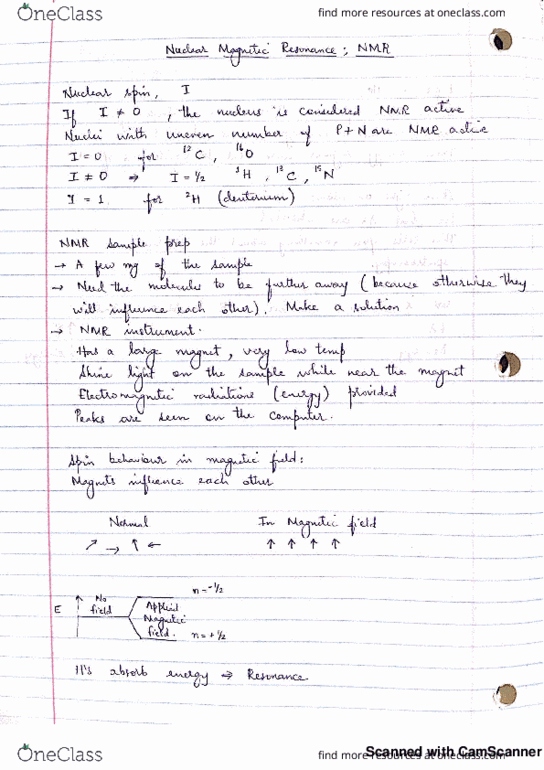 OneClass
find more resources at oneclass.com
Nuclear Magnetic Resonance ; NMR
Nuclear spin, I
If I ≠ 0 , the nucleus is considered NMR active
Nuclei with uneven number of P+N are NMR active
I = 0 for ¹²C , ¹⁶O
I ≠ 0 → I = ½ ¹H , ¹³C , ¹⁵N
I = 1 for ²H (deuterium)
NMR sample prep
→ A few mg of the sample
→ Need the molecules to be further away (because otherwise they
will influence each other). Make a solution
→ NMR instrument.
Has a large magnet, very low temp
Shine light on the sample while near the magnet
Electromagnetic radiations (energy) provided
Peaks are seen on the computer.
Spin behaviour in magnetic field:
Magnets influence each other
Normal In Magnetic field
↗ → ↑ ← ↑ ↑ ↑ ↑
n = -½
E No field Applied Magnetic field. n = + ½
H's absorb energy ⇒ Resonance
OneClass
find more resources at oneclass.com
Scanned with CamScanner